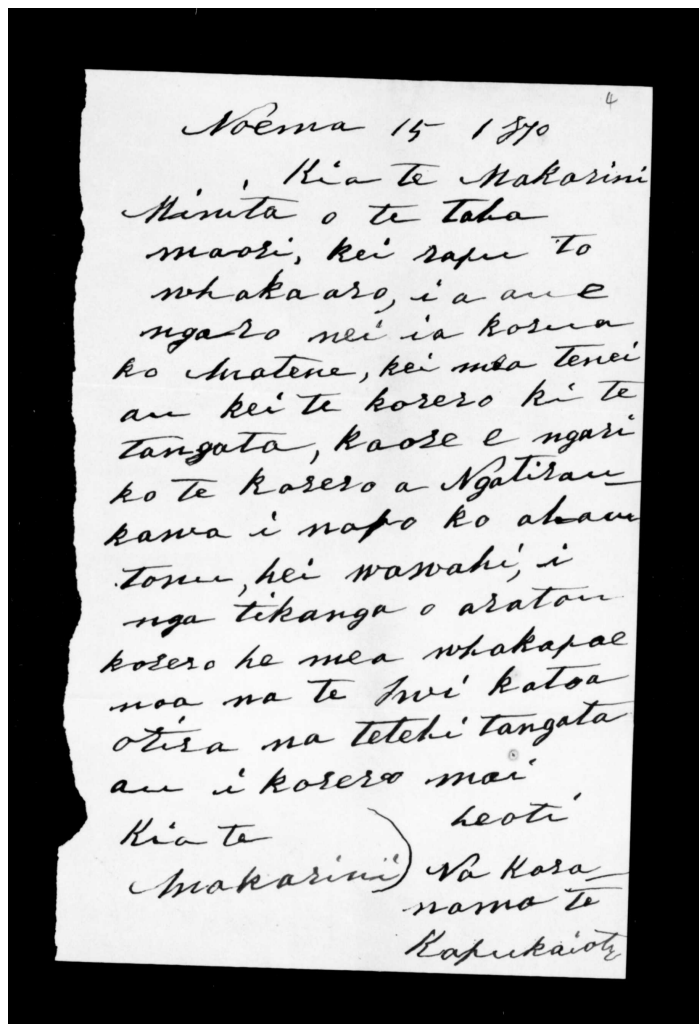 4
Noema 15 1870
Kia te Makarini
Minita o te taha
maori, kei rapu to
whakaaro, i a au e
ngaro nei ia korua
ko Matene, kei mea tenei
au kei te korero ki te
tangata, kaore e ngari
ko te korero a Ngatirau-
kawa i napo ko ahau
tonu, hei wawahi, i
nga tikanga o aratou
korero he mea whakapae
noa na te Iwi katoa
otira na tetehi tangata
au i korero mai
heoti
Kia te
Makarini)
Na Kara-
nama te
Kapukaiotu